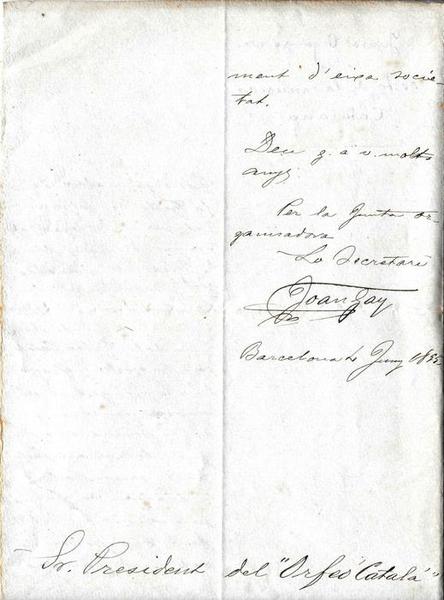 ment d'eixa socie-
tat.
Deu g. a v. molts
anys.
Per la Junta or-
ganisadora
Lo Secretari
Joan Gay
Barcelona 4 Juny 1892
Sr. President del "Orfeó Catalá"